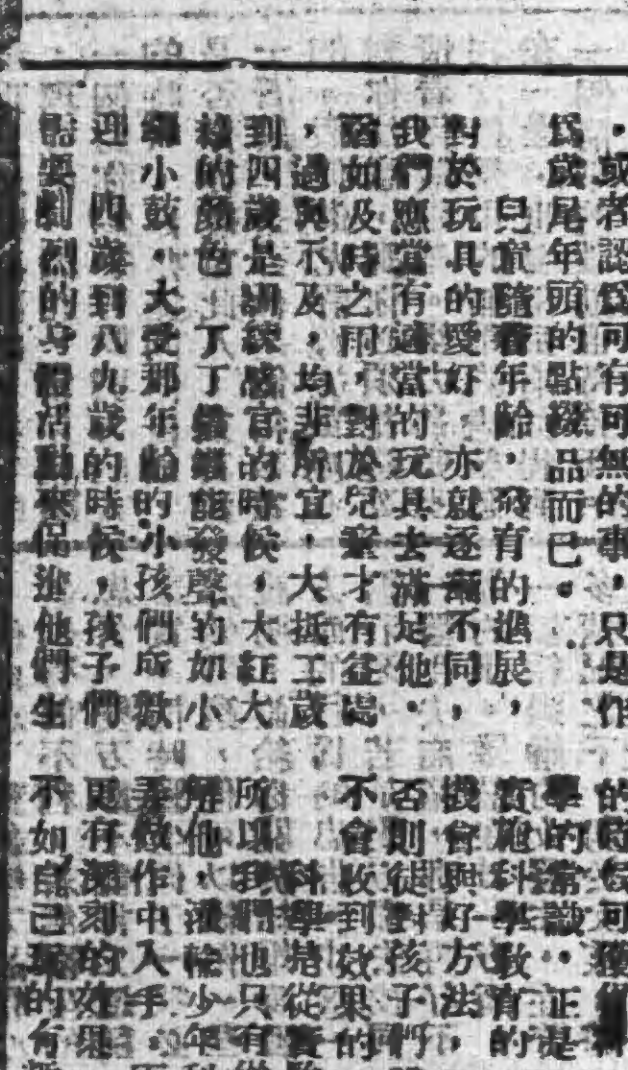 ，或者認爲可有可無的事，只是作
爲歲尾年頭的點綴品而已。
兒童隨着年齡，發育的進展，
對於玩具的愛好，亦就逐漸不同，
我們應當有適當的玩具去滿足他。
譬如及時之雨，對於兒童才有益處
，過與不及，均非所宜，大抵二歲
到四歲是訓練感官的時候，大紅大
綠的顏色，丁丁能發聲的如小
小鼓，大受那年齡的小孩們所歡
迎，四歲到八九歲的時候，孩子們
需要劇烈的身體活動來促進他們生
的時候可
學的常識，正是
實施科學教育的
機會與好方法，
否則徒對孩子們
不會收到效果的
科學是從實
所以我們也只有從
解他，灌輸少年科
弄做作中入手，
更有深刻的
不如自己玩的有